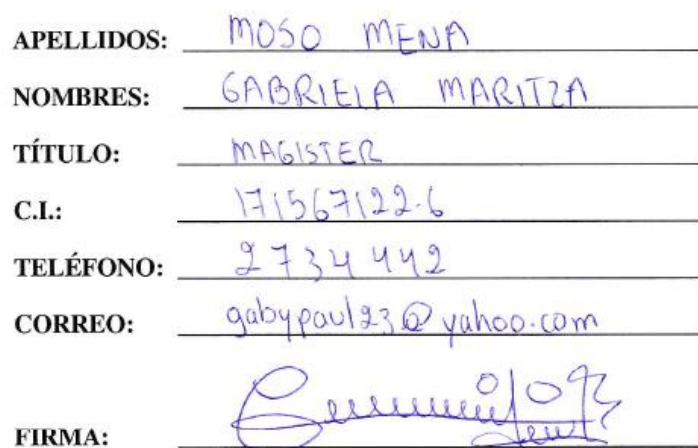 APELLIDOS: MOSO MENA
NOMBRES: GABRIELA MARITZA
TÍTULO: MAGISTER
C.I.: 171567122-6
TELÉFONO: 2734442
CORREO: gabypaul23@yahoo.com
FIRMA: